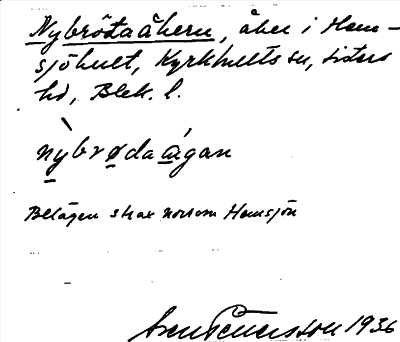 Nybrötaåkern, åker i Hem-
sjöhult, Kyrkhults sn, Listers
hd, Blek. l.
nỳbrødaågan
Belägen strax norr om Hemsjön
Sven Pettersson 1936